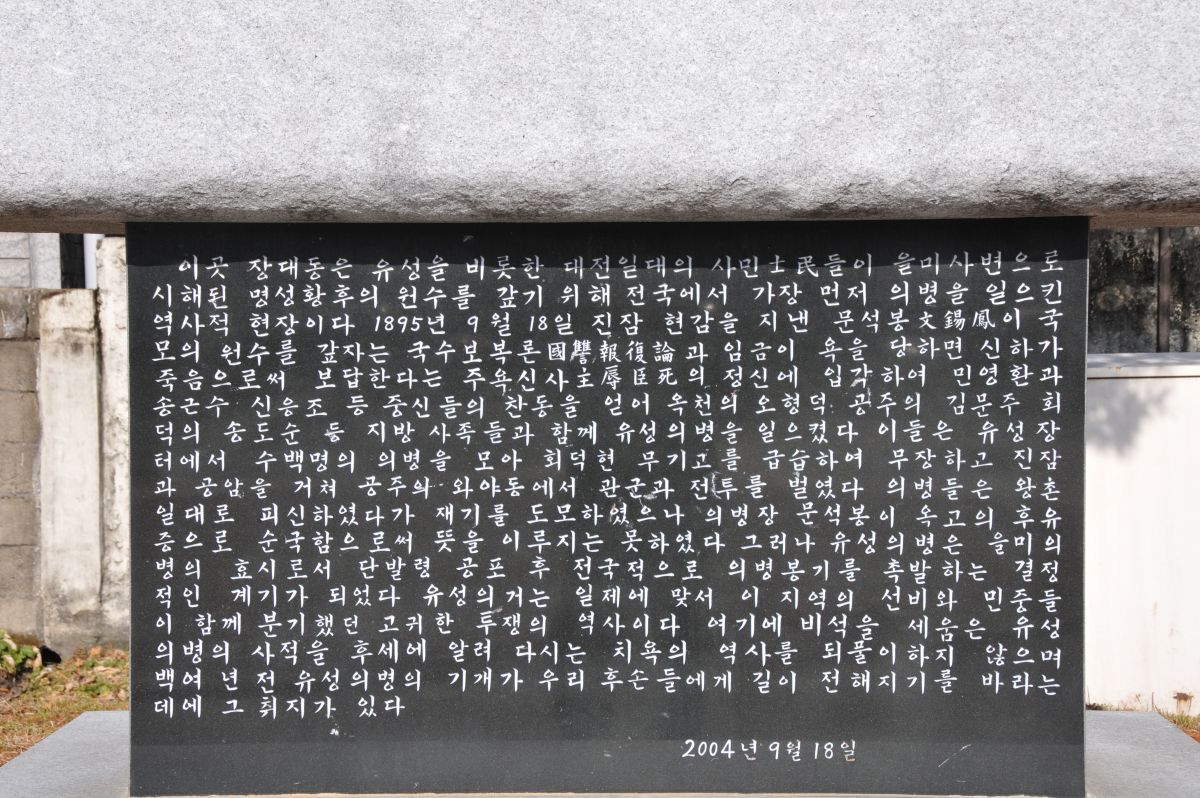 이곳 장대동은 유성을 비롯한 대전일대의 사민士民들이 을미사변으로
시해된 명성황후의 원수를 갚기 위해 전국에서 가장 먼저 의병을 일으킨
역사적 현장이다 1895년 9월 18일 진잠 현감을 지낸 문석봉文錫鳳이 국
모의 원수를 갚자는 국수보복론國讐報復論과 임금이 욕을 당하면 신하가
죽음으로써 보답한다는 주욕신사主辱臣死의 정신에 입각하여 민영환과
송근수 신응조 등 중신들의 찬동을 얻어 옥천의 오형덕 공주의 김문주 회
덕의 송도순 등 지방 사족들과 함께 유성의병을 일으켰다 이들은 유성장
터에서 수백명의 의병을 모아 회덕현 무기고를 급습하여 무장하고 진잠
과 공암을 거쳐 공주의 와야동에서 관군과 전투를 벌였다 의병들은 왕촌
일대로 피신하였다가 재기를 도모하였으나 의병장 문석봉이 옥고의 후유
증으로 순국함으로써 뜻을 이루지는 못하였다 그러나 유성의병은 을미의
병의 효시로서 단발령 공포 후 전국적으로 의병봉기를 촉발하는 결정
적인 계기가 되었다 유성의거는 일제에 맞서 이 지역의 선비와 민중들
이 함께 분기했던 고귀한 투쟁의 역사이다 여기에 비석을 세움은 유성
의병의 사적을 후세에 알려 다시는 치욕의 역사를 되풀이하지 않으며
백여 년 전 유성의병의 기개가 우리 후손들에게 길이 전해지기를 바라는
데에 그 취지가 있다
2004년 9월 18일